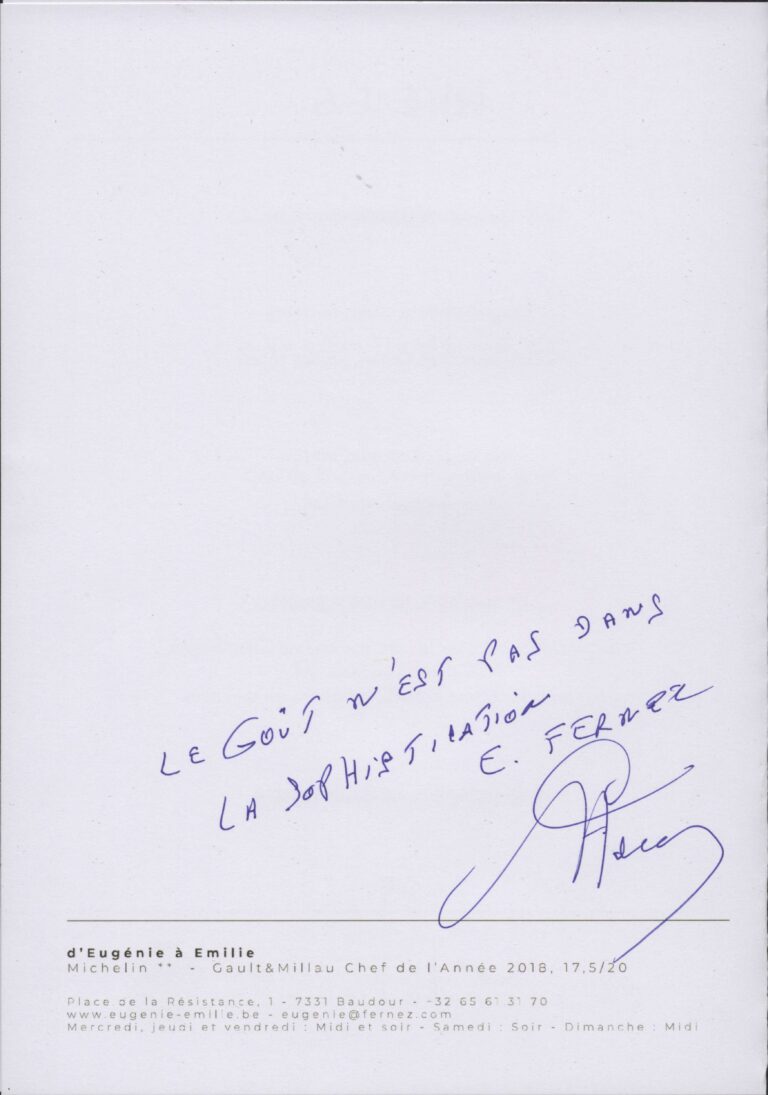 LE GOÛT N'EST PAS DANS
LA SOPHISTICATION
E. FERNEZ
d'Eugénie à Emilie
Michelin ** - Gault&Millau Chef de l'Année 2018, 17,5/20
Place de la Résistance, 1 - 7331 Baudour - +32 65 61 31 70
www.eugenie-emilie.be - eugenie@fernez.com
Mercredi, jeudi et vendredi : Midi et soir - Samedi : Soir - Dimanche : Midi